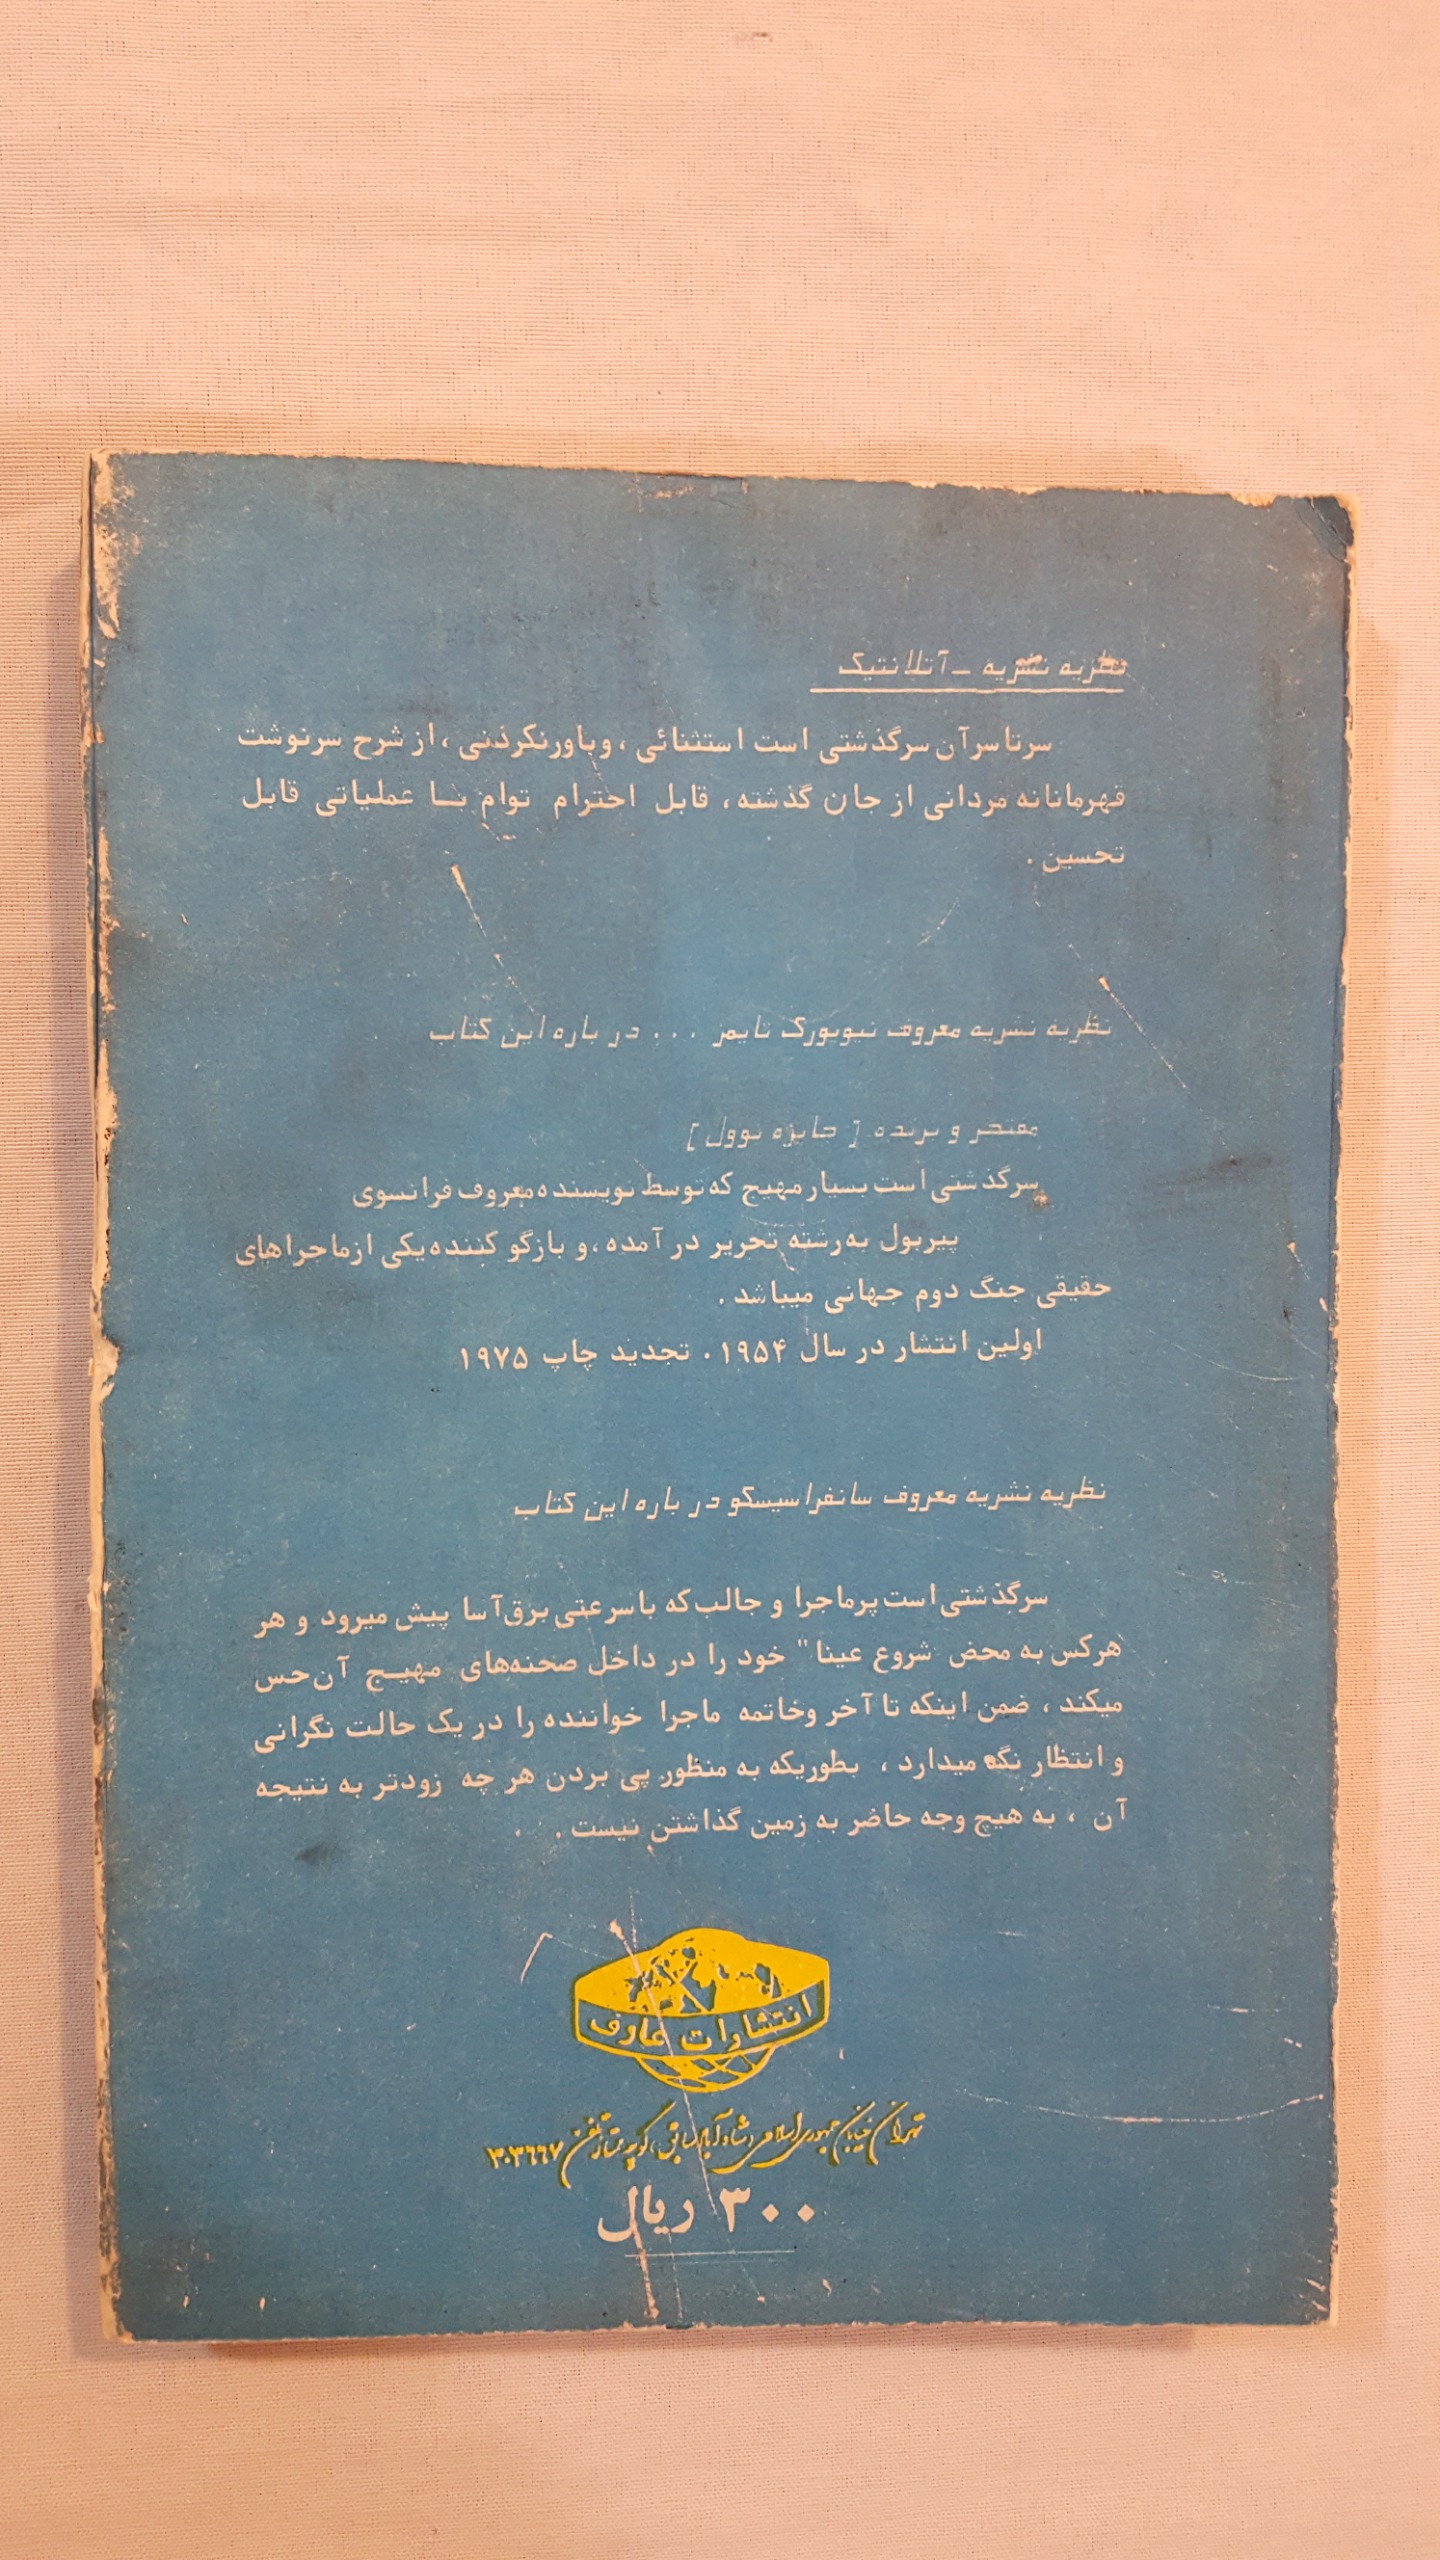 نظریه نشریه ـ آتلانتیک
سرتاسر آن سرگذشتی است استثنائی، و باورنکردنی، از شرح سرنوشت
قهرمانانه مردانی از جان گذشته، قابل احترام توام بـا عملیاتی قابل
تحسین.
نظریه نشریه معروف نیویورک تایمز ... در باره این کتاب
مفتخر و برنده [ جایزه نوول ]
سرگذشتی است بسیار مهیج که توسط نویسنده معروف فرانسوی
پیر بول به رشته تحریر در آمده، و بازگو کننده یکی از ماجراهای
حقیقی جنگ دوم جهانی میباشد.
اولین انتشار در سال ۱۹۵۴. تجدید چاپ ۱۹۷۵
نظریه نشریه معروف سانفراسیسکو در باره این کتاب
سرگذشتی است پرماجرا و جالب که با سرعتی برق‌آسا پیش میرود و هر
هرکس به محض شروع عینا" خود را در داخل صحنه‌های مهیج آن حس
میکند، ضمن اینکه تا آخر و خاتمه ماجرا خواننده را در یک حالت نگرانی
و انتظار نگه میدارد، بطوریکه به منظور پی بردن هر چه زودتر به نتیجه
آن، به هیچ وجه حاضر به زمین گذاشتن نیست.
انتشارات عارف
تهران خیابان جمهوری اسلامی (شاه‌آباد سابق) کوچه ممتاز تلفن ۳۰۳۶۶۷
۳۰۰ ریال